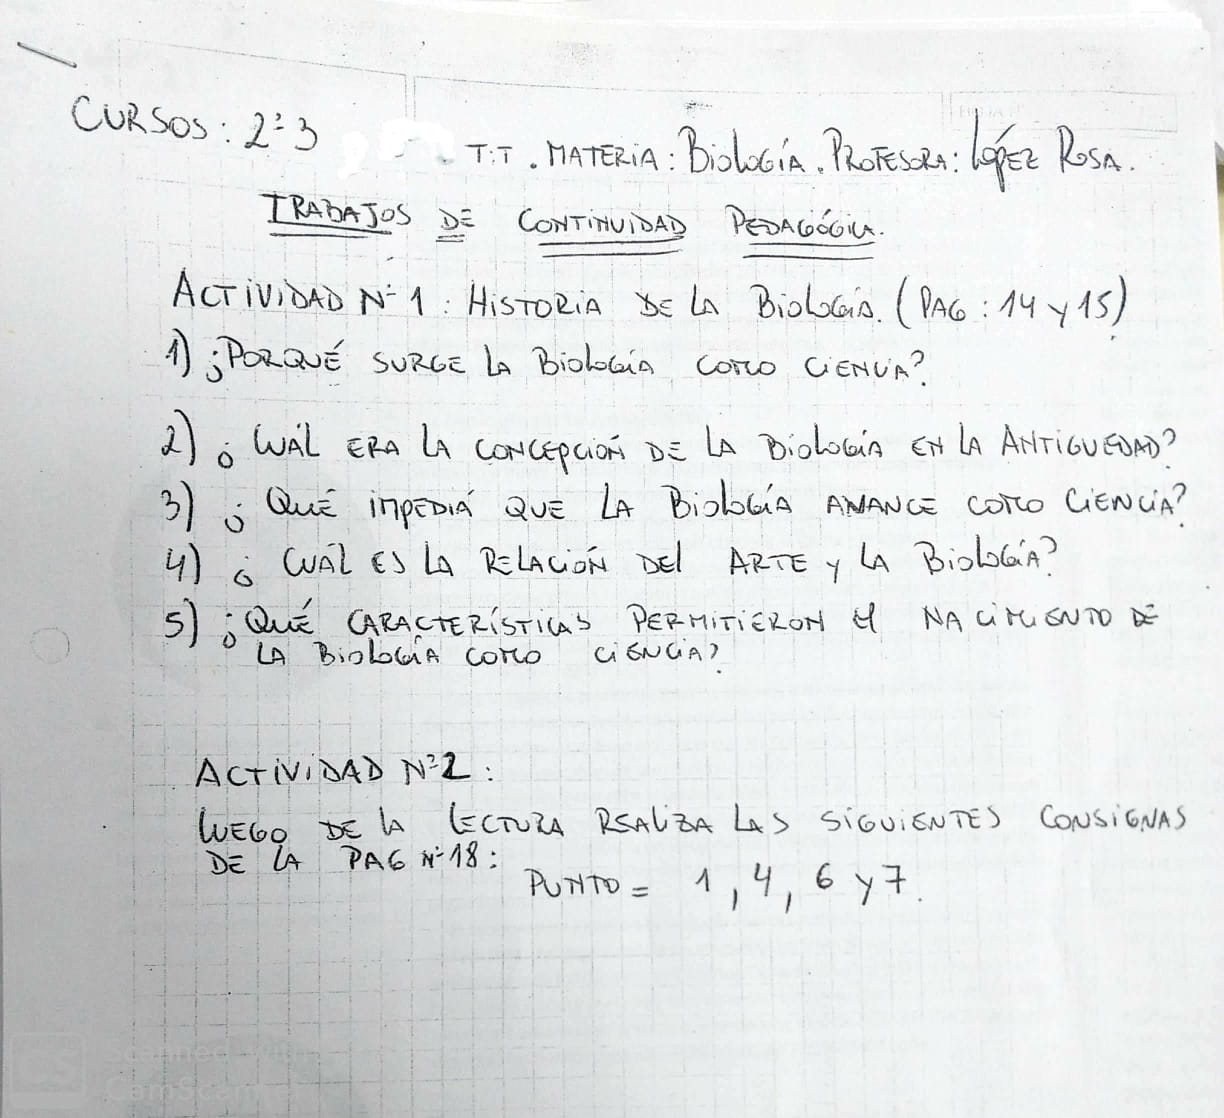 CURSOS: 2º3
T.T. MATERIA: Biología. PROFESORA: LópEz ROSA.
TRABAJOS DE CONTINUIDAD PEDAGÓGICA.
ACTIVIDAD Nº 1: HISTORIA DE LA Biología. (PAG: 14 y 15)
1) ¿PORQUÉ SURGE LA Biología COMO CIENCIA?
2) ¿CUÁL ERA LA CONCEPCIÓN DE LA Biología EN LA ANTIGUEDAD?
3) ¿QUÉ IMPEDIÁ QUE LA Biología AVANCE COMO CIENCIA?
4) ¿CUÁL ES LA RELACIÓN DEL ARTE y LA Biología?
5) ¿QUÉ CARACTERÍSTICAS PERMITIERON El NACIMIENTO DE
LA BIOLOGÍA COMO CIENCIA?
ACTIVIDAD Nº2:
LUEGO DE LA LECTURA REALIZA LAS SIGUIENTES CONSIGNAS
DE LA PAG Nº18:
PUNTO = 1, 4, 6 y 7.
CS
Scanned with
CamScanner